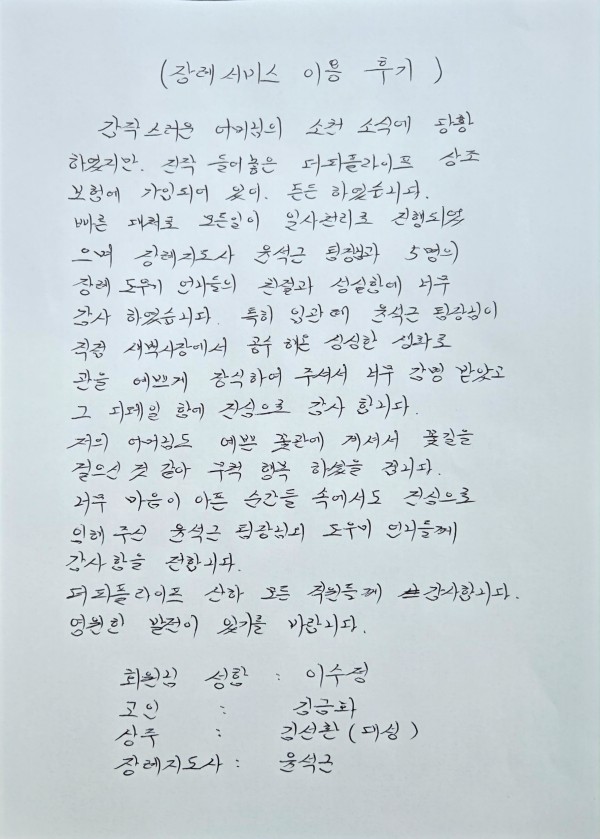 (장례서비스 이용 후기)
갑작스러운 어머님의 소천 소식에 당황
하였지만. 진작 들어놓은 더피플라이프 상조
보험에 가입되어 있어. 든든 하였습니다.
빠른 대처로 모든일이 일사천리로 진행되었
으며 장례지도사 윤석근 팀장님과 5명의
장례 도우미 언니들의 친절과 성실함에 너무
감사 하였습니다. 특히 입관 때 윤석근 팀장님이
직접 새벽시장에서 공수 해온 싱싱한 생화로
관을 예쁘게 장식하여 주셔서 너무 감명 받았고
그 디테일 함에 진심으로 감사 합니다.
저의 어머님도 예쁜 꽃관에 계셔서 꽃길을
걸으신 것 같아 무척 행복 하셨을 겁니다.
너무 마음이 아픈 순간들 속에서도 진심으로
위해 주신 윤석근 팀장님과 도우미 언니들께
감사함을 전합니다.
더피플라이프 산하 모든 직원들께 감사합니다.
영원한 발전이 있기를 바랍니다.
회원님 성함 : 이수정
고인 : 김금화
상주 : 김선환 (대성)
장례지도사 : 윤석근